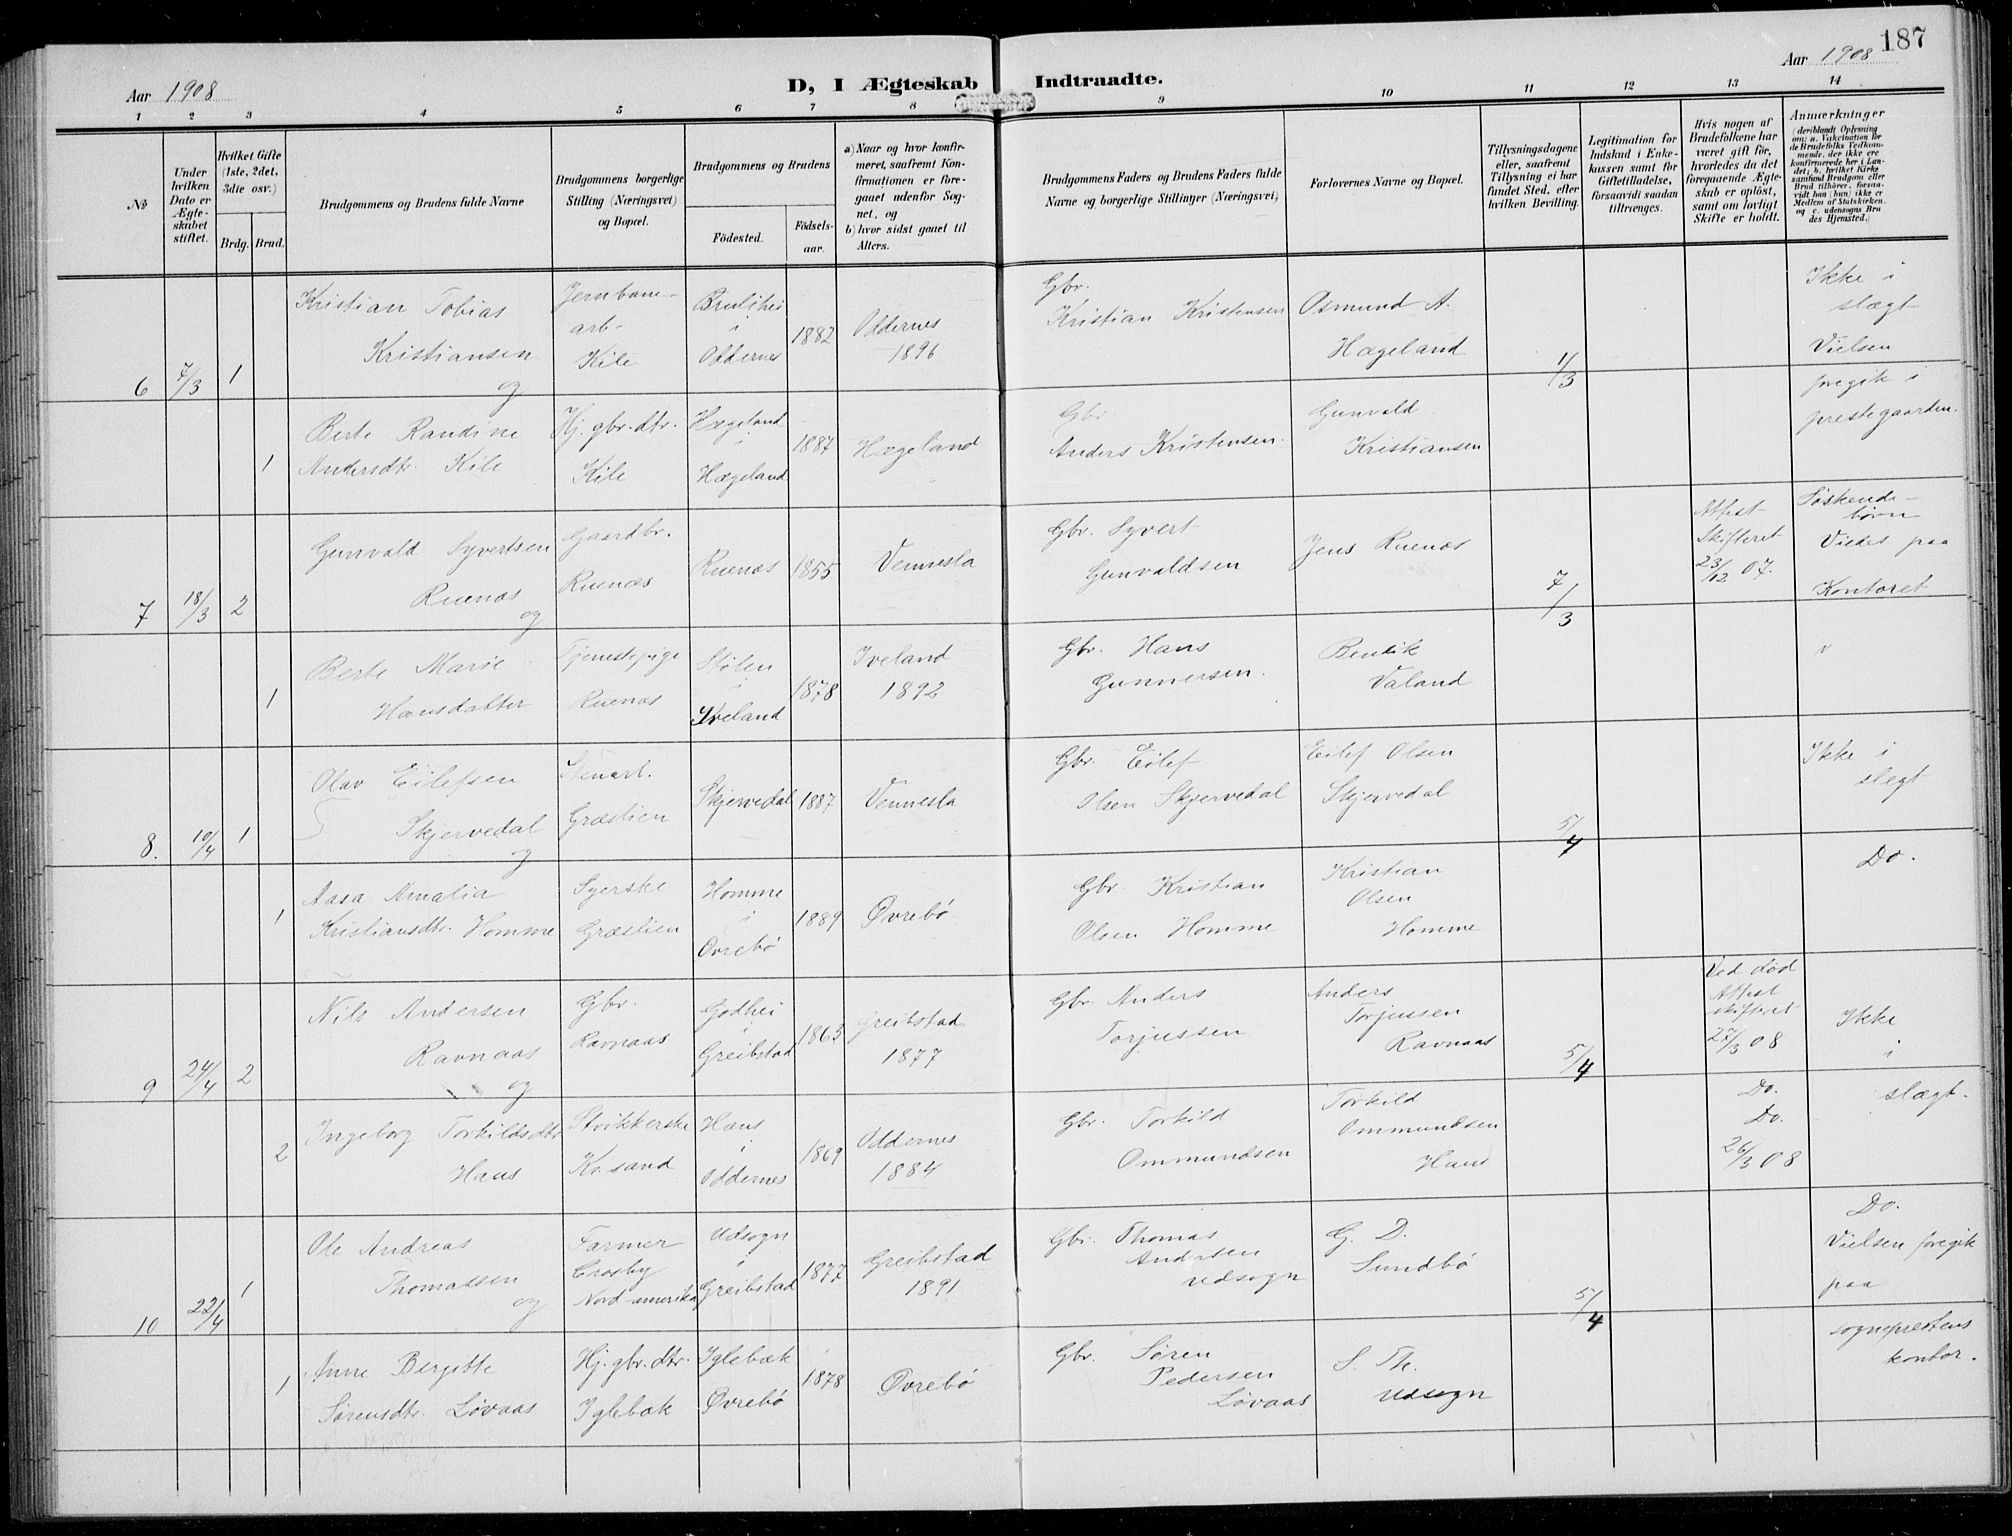 187
Aar 1908
D, I Ægteskab Indtraadte.
Aar 1908
1 2 3 4 5 6 7 8 9 10 11 12 13 14
No
Under hvilken Dato er Ægteskabet stiftet.
Hvilket Gifte (1ste, 2det, 3die osv.)
Brdg. Brud.
Brudgommens og Brudens fulde Navne
Brudgommens borgerlige Stilling (Næringsvei) og Bopæl.
Brudgommens og Brudens
Födested. Födselsaar.
a) Naar og hvor konfirmeret, saafremt Konfirmationen er foregaaet udenfor Sognet, og
b) hvor sidst gaaet til Alters.
Brudgommens Faders og Brudens Faders fulde Navne og borgerlige Stillinger (Næringsvei)
Forlovernes Navne og Bopæl.
Tillysningsdagene eller, saafremt Tillysning ei har fundet Sted, efter hvilken Bevilling.
Legitimation for Indskud i Enkekassen samt for Giftetilladelse, forsaavidt saadan tiltrænges.
Hvis nogen af Brudefolkene har været gift för, hvorledes da det foregaaende Ægteskab er oplöst, samt om lovligt Skifte er holdt.
Anmærkninger
(deriblandt Oplysning om: a. Vakcination for de Brudefolks Vedkommende, der ikke ere konfirmerede her i Landet; b. hvilket Kirkesamfund Brudgom eller Brud tilhörer, forsaavidt han (hun) ikke er Medlem af Statskirken, og c. udensogns Brudes Hjemsted.)
6 7/3 1 Kristian Tobias Kristiansen og
Jernbanearb. Kile
i Oddernes 1882
Oddernes 1896
Gbr. Kristian Kristensen
Osmund A. Hægeland
1/3
Ikke i slægt
Vielsen foregik i prestegaarden.
1 Berte Randine Andersdtr. Kile
Hj. gbr. dtr. Kile
Hægeland i Hægeland 1887
Hægeland
Gbr. Anders Kristensen.
Gunvald Kristiansen
7 18/3 2 Gunvald Syvertsen Ruenæs og
Gaardbr. Ruenæs
Ruenæs 1855
Vennesla
Gbr. Syvert Gunvaldsen
Jens Ruenæs
7/3
Attest Skifteret 23/12 07.
Søskendebørn
Viedes paa Kontoret
1 Berte Marie Hansdatter
Tjenestepige Ruenæs
Stølen i Iveland 1878
Iveland 1892
Gbr. Hans Gunnersen.
Bendik Valand
"
8. 10/4 1 Olav Eilefsen Skjervedal og
Stenarb. Græslien
Skjervedal 1887
Vennesla
Gbr. Eilef Olsen Skjervedal
Eilef Olsen Skjervedal
5/4
Ikke i slegt
1 Aasa Amalia Kristiansdtr. Homme
Syerske Græslien
Homme i Øvrebø 1889
Øvrebø
Gbr. Kristian Olsen Homme
Kristian Olsen Homme
Do.
9 24/4 2 Nils Andersen Ravnaas og
Gbr. Ravnaas
Godhei i Greibstad 1863
Greibstad 1877
Gbr. Anders Torjussen
Anders Torjussen Ravnaas
5/4
Ved død Attest skifteret 27/3 08
Ikke i slægt.
2 Ingeborg Torkildsdtr Haus
Strikkerske Kr.sand
Haus i Oddernes 1869
Oddernes 1884
Gbr. Torkild Ommundsen
Torkild Ommundsen Haus
Do. Do. 26/3 08
10 22/4 1 Ole Andreas Thomassen og
Farmer Crosby Nord-amerika
Udsogn i Greibstad 1877
Greibstad 1891
Gbr. Thomas Andersen Udsogn
G. D. Sundbø
5/4
Do.
Vielsen foregik paa sogneprestens kontor.
1 Anne Bergitte Sørensdtr. Løvaas
Hj. gbr. dtr. Iglebæk
Iglebæk Øvrebø 1878
Øvrebø
Gbr. Søren Pedersen Løvaas
S. Th. Udsogn